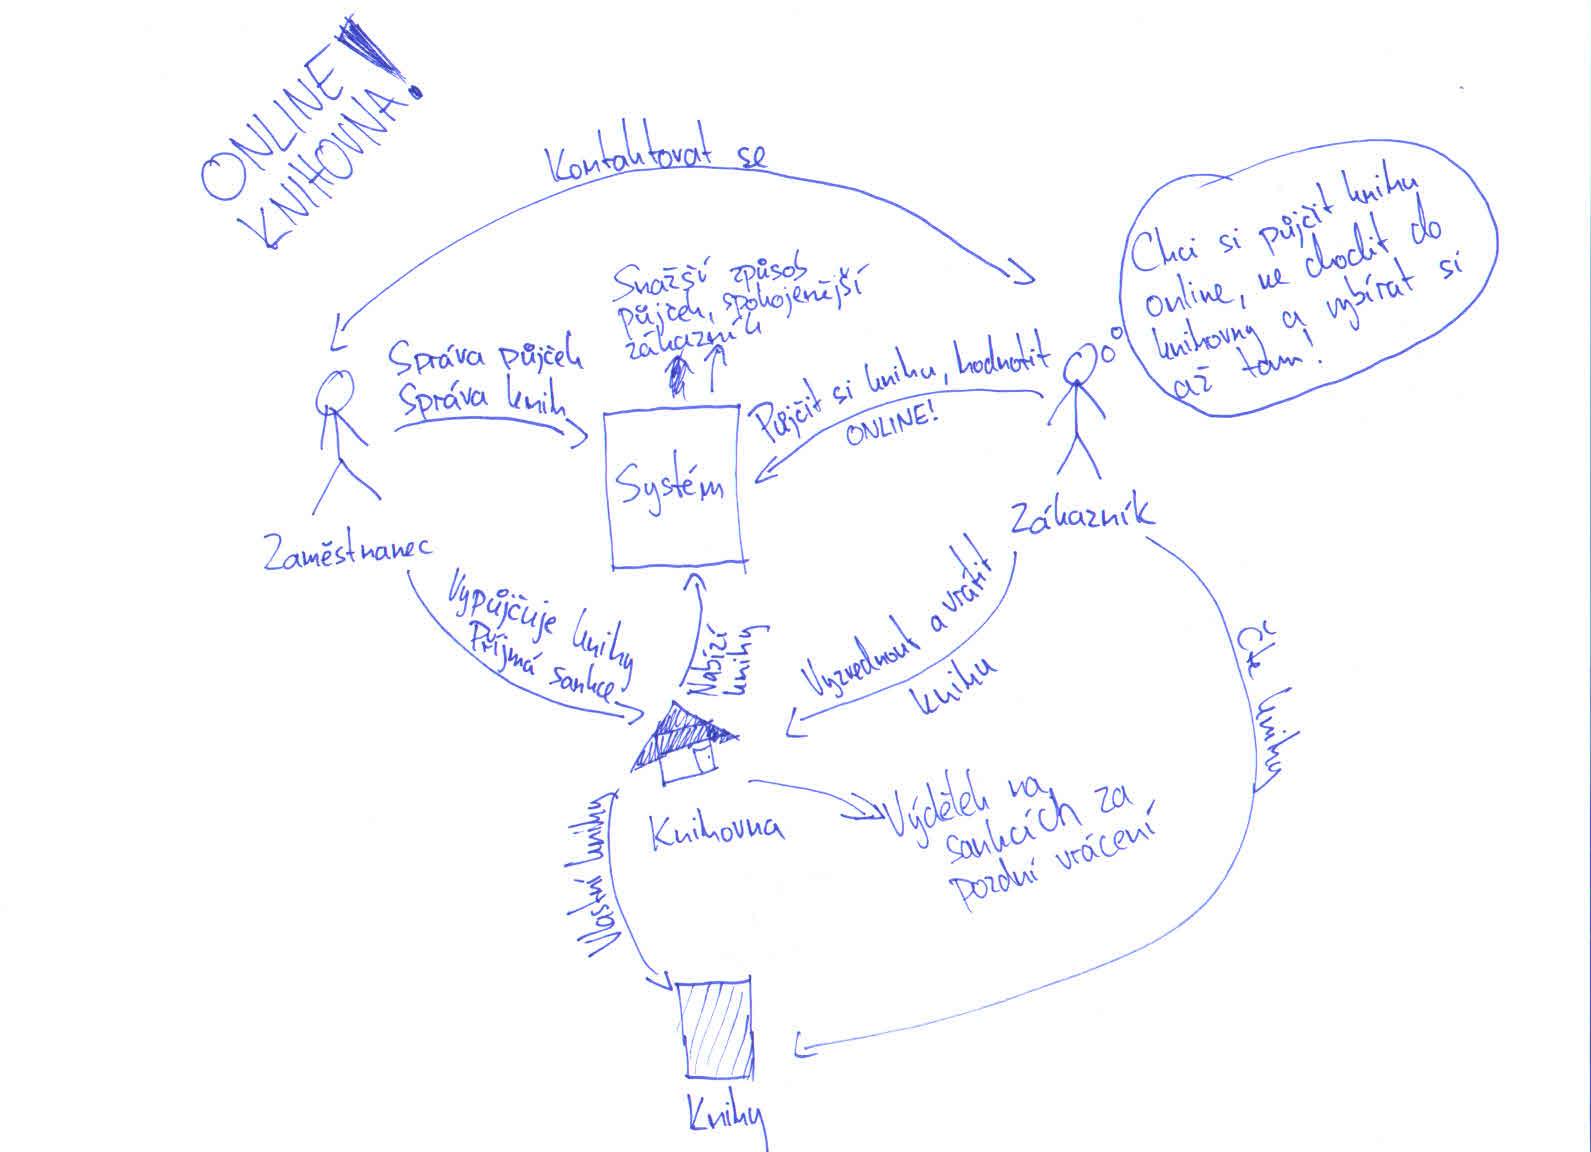 ONLINE
KNIHOVNA!
Kontaktovat se
Chci si půjčit knihu
online, ne chodit do
knihovny a vybírat si
až tam!
Snažší způsob
půjček, spokojenější
zákazník
Správa půjček
Správa knih
Půjčit si knihu, hodnotit
ONLINE!
Systém
Zaměstnanec
Zákazník
Vypůjčuje knihy
Přijmá sankce
Nabízí
knihy
Vyzvednout a vrátit
knihu
Čte knihy
Knihovna
Výdělek na
sankcích za
pozdní vrácení
Vlastní knihy
Knihy